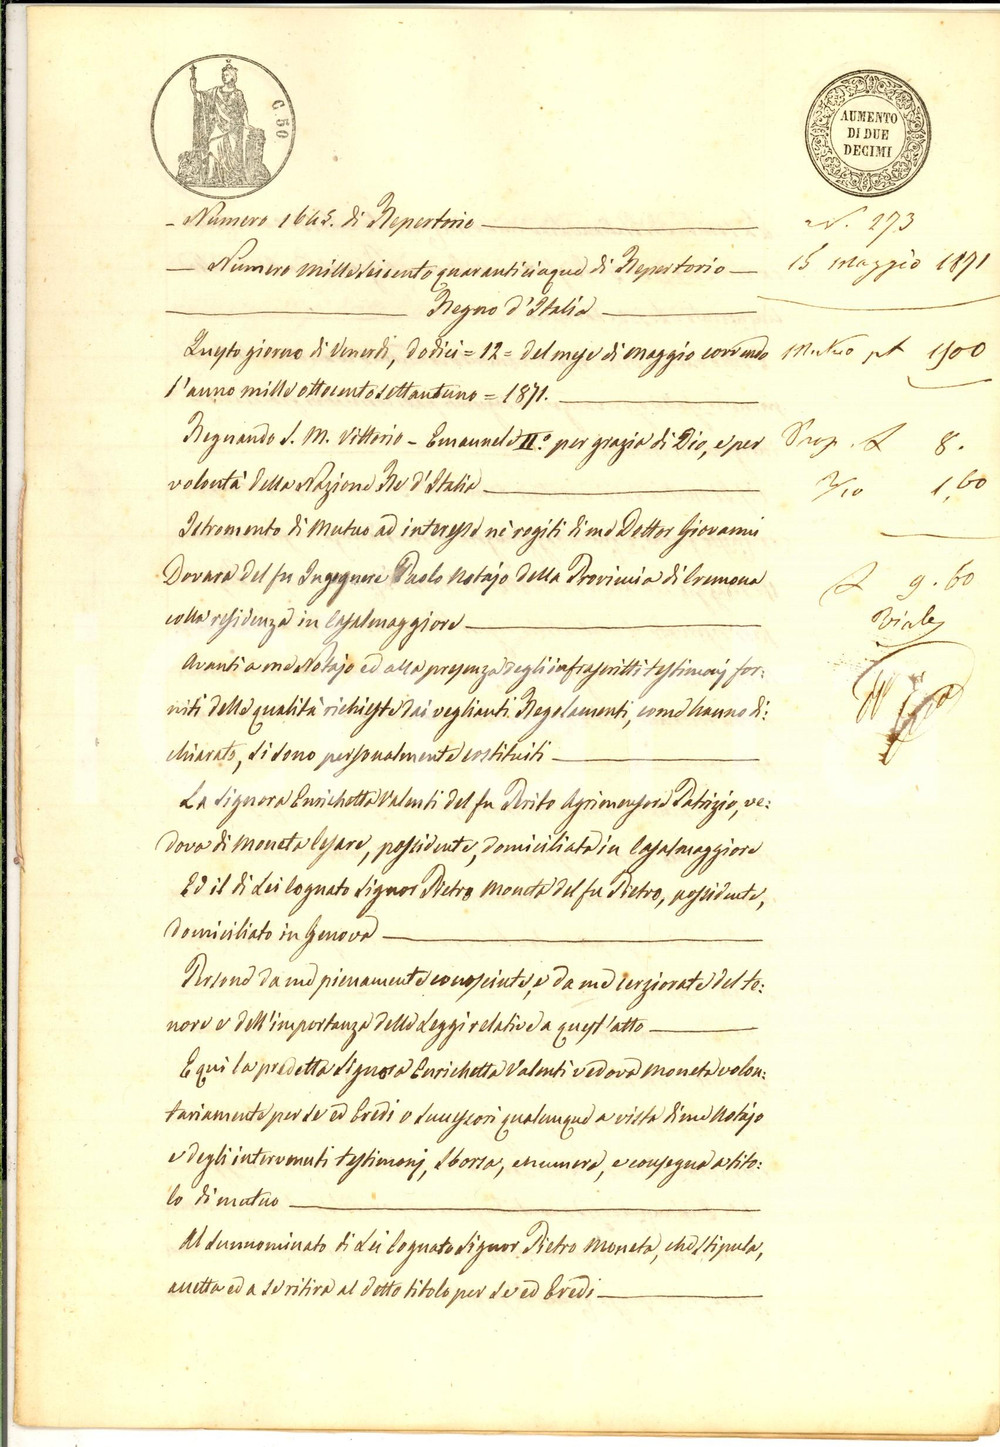 C. 50
AUMENTO
DI DUE
DECIMI
- Numero 1645. di Repertorio
N. 273
- Numero mille seicento quaranticinque di Repertorio -
15 maggio 1871
Regno d'Italia
Questo giorno di Venerdì, dodici = 12 = del mese di maggio correndo
Mutuo 1500
l'anno mille ottocento settantuno = 1871.
Regnando S. M. Vittorio - Emanuele II.° per grazia di Dio, e per
Prop. £ 8.
volontà della Nazione Re d'Italia
2/10 1,60
Istromento di Mutuo ad interesse nei rogiti di me Dottor Giovanni
Dovara del fu Ingegnere Paolo Notajo della Provincia di Cremona
£ 9.60
colla residenza in Casalmaggiore
Avanti a me Notajo ed alla presenza degli infrascritti testimonj for:
niti delle qualità richieste dai veglianti Regolamenti, come hanno di:
chiarato, si sono personalmente costituiti
La Signora Enrichetta Valenti del fu Perito Agrimensore Patrizio, ve:
dova di Moneta Cesare, possidente, domiciliata in Casalmaggiore
Ed il di Lei Cognato Signor Pietro Moneta del fu Pietro, possidente,
domiciliato in Genova
Persone da me pienamente conosciute, e da me cerziorate del te:
nore e dell'importanza delle Leggi relative a quest'atto
E qui la predetta Signora Enrichetta Valenti vedova Moneta volon:
tariamente per se ed Eredi e successori qualunque a vista di me Notajo
e degli intervenuti testimonj, sborsa, enumera, e consegna a tito:
lo di mutuo
Al sunnominato di Lei Cognato Signor Pietro Moneta, che stipula,
accetta ed a se ritira al detto titolo per se ed Eredi